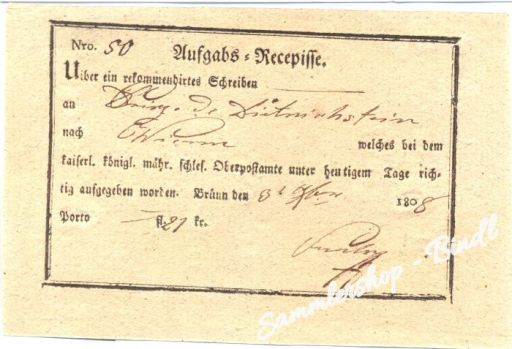 Nro. 50 Aufgabs-Recepisse.
Uiber ein rekommendirtes Schreiben
an de Dietrichstein
nach Wienn welches bei dem
kaiserl. königl. mähr. schles. Oberpostamte unter heutigem Tage rich-
tig aufgegeben worden. Brünn den 3t 1808
Porto fl. 21 kr.
Sammlershop - Bindl